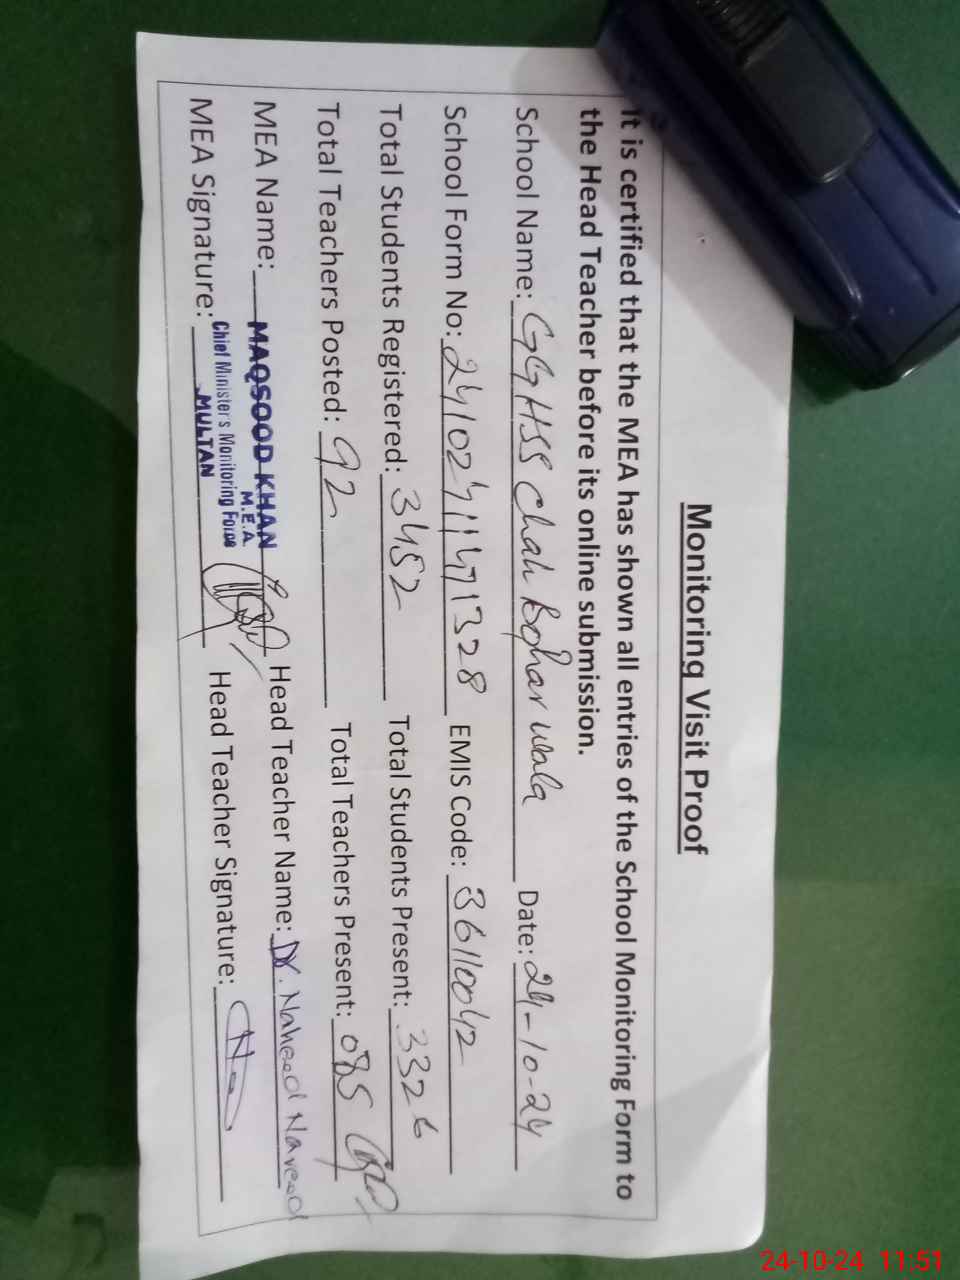 Monitoring Visit Proof
It is certified that the MEA has shown all entries of the School Monitoring Form to
the Head Teacher before its online submission.
School Name: GGHSS Chah Bohar wala Date: 24-10-24
School Form No: 24102411471328 EMIS Code: 36110042
Total Students Registered: 3452 Total Students Present: 3326
Total Teachers Posted: 92 Total Teachers Present: 085
MEA Name: MAQSOOD KHAN Head Teacher Name: Dr. Naheed Naveed
M.E.A.
MEA Signature: Chief Minister's Monitoring Force Head Teacher Signature:
MULTAN
24-10-24 11:51